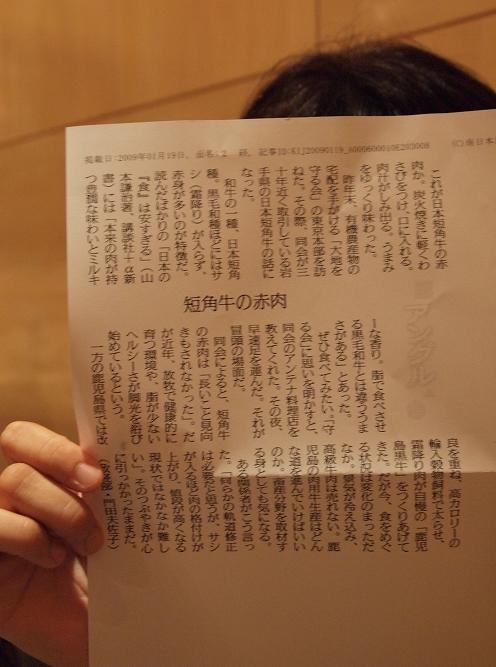 掲載日:2009年01月19日, 面名:2 総, 記事ID:
(C)南日本
アングル
短角牛の赤肉
これが日本短角牛の赤
肉か。炭火焼きに軽くわ
さびをつけ口に入れる。
肉汁がしみ出る。うまみ
をゆっくり味わった。
昨年末、有機農産物の
宅配を手がける「大地を
守る会」の東京本部を訪
ねた。その際、同会が三
十年近く取引している岩
手県の日本短角牛の話に
なった。
和牛の一種、日本短角
種。黒毛和種ほどにはサ
シ(霜降り)が入らず、
赤身が多いのが特徴だ。
読んだばかりの「日本の
『食』は安すぎる」(山
本謙治著、講談社+α新
書)には「本来の肉が持
つ豊潤な味わいとミルキ
ーな香り。脂で食べさせ
る黒毛和牛とは違ううま
さがある」とあった。
ぜひ食べてみたい。「守
る会」に思いを明かすと、
同会のアンテナ料理店を
教えてくれた。その夜、
早速足を運んだ。それが
冒頭の場面だ。
同会によると、短角牛
の赤肉は「長いこと見向
きもされなかった」。だ
が近年、放牧で健康的に
育つ環境や、脂が少ない
ヘルシーさが脚光を浴び
始めているという。
一方の鹿児島県では改
良を重ね、高カロリーの
輸入穀物飼料で太らせ、
霜降り肉が自慢の「鹿児
島黒牛」をつくりあげて
きた。だが今、食をめぐ
る状況は変化のまっただ
なか。景気が冷え込み、
高級牛肉は売れない。鹿
児島の肉用牛生産はどん
な道を進んでいけばいい
のか。畜産分野を取材す
る身としても気になる。
ある関係者がこう言っ
た。「何らかの軌道修正
は必要だと思うが、サシ
が入るほど肉の格付けが
上がり、値段が高くなる
現状ではなかなか難し
い」。そのつぶやきが心
に引っかかったままだ。
(政経部・門田夫佐子)